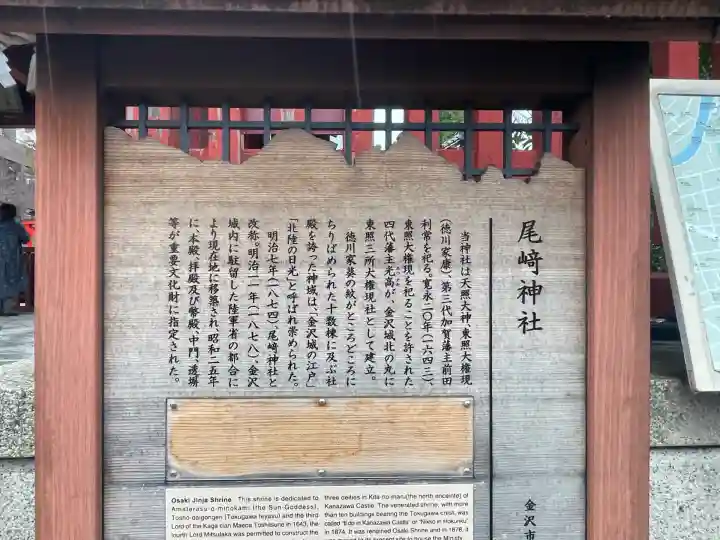 尾﨑神社
当神社は天照大神、東照大権現
（徳川家康）、第三代加賀藩主前田
利常を祀る。寛永二〇年（一六四三）、
東照大権現を祀ることを許された
四代藩主光高が、金沢城北の丸に
東照三所大権現社として建立。
徳川家葵の紋がところどころに
ちりばめられた十数棟に及ぶ社
殿を誇った神域は、「金沢城の江戸」
「北陸の日光」と呼ばれ崇められた。
明治七年（一八七四）、尾﨑神社と
改称。明治一一年（一八七八）、金沢
城内に駐留した陸軍省の都合に
より現在地に移築され、昭和二五年
に、本殿、拝殿及び幣殿、中門、透塀
等が重要文化財に指定された。
金沢市
Osaki Jinja Shrine This shrine is dedicated to
Amaterasu-o-minokami (the Sun-Goddess),
Tosho-daigongen (Tokugawa Ieyasu) and the third
Lord of the Kaga clan Maeda Toshitsune. In 1643, the
fourth Lord Mitsutaka was permitted to construct the
three deities in Kita-no-maru (the north enceinte) of
Kanazawa Castle. The venerated shrine, with more
than ten buildings bearing the Tokugawa crest, was
called "Edo in Kanazawa Castle" or "Nikko in Hokuriku"
in 1874. It was renamed Osaki Shrine and in 1878, it